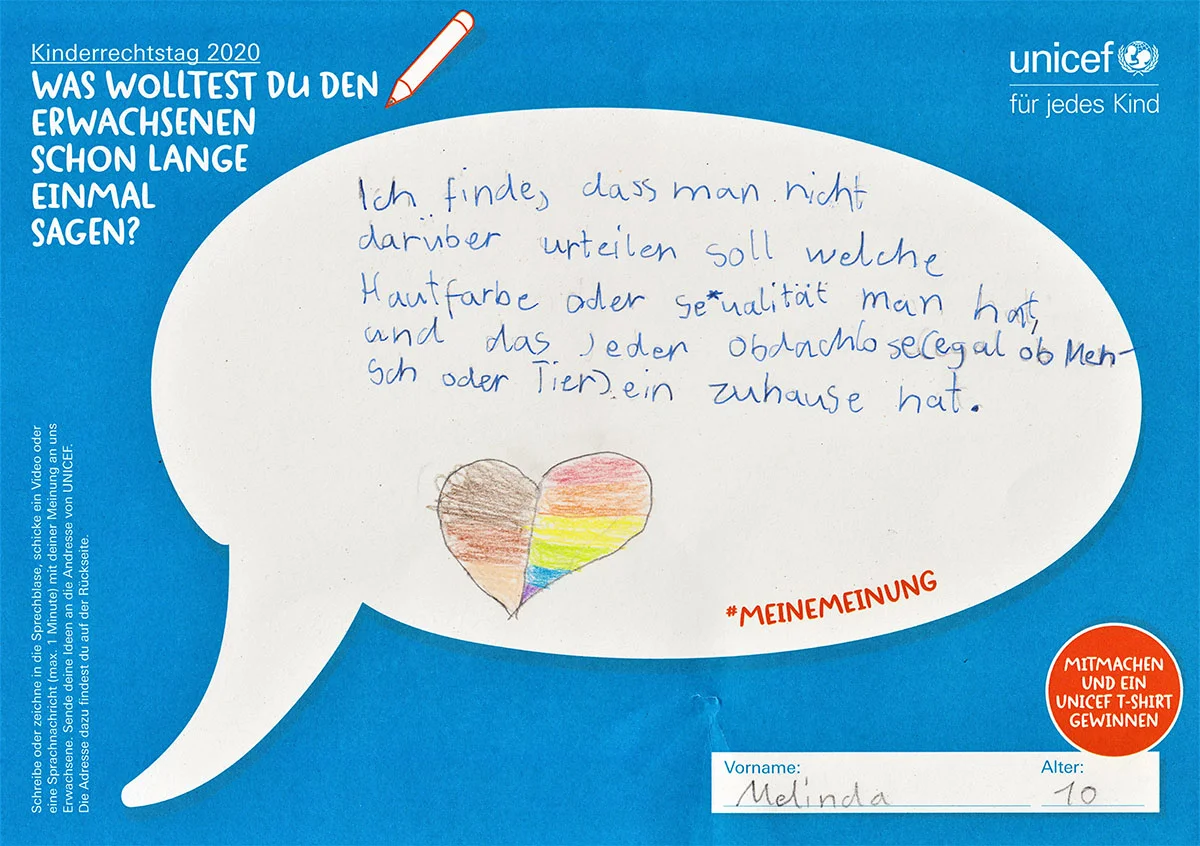 Kinderrechtstag 2020
WAS WOLLTEST DU DEN
ERWACHSENEN
SCHON LANGE
EINMAL
SAGEN?
unicef
für jedes Kind
Ich finde, dass man nicht
darüber urteilen soll welche
Hautfarbe oder se*ualität man hat,
und das jeder obdachlose(egal ob Men-
sch oder Tier) ein zuhause hat.
#MEINEMEINUNG
Schreibe oder zeichne in die Sprechblase, schicke ein Video oder
eine Sprachnachricht (max. 1 Minute) mit deiner Meinung an uns
Erwachsene. Sende deine Ideen an die Andresse von UNICEF.
Die Adresse dazu findest du auf der Rückseite.
MITMACHEN
UND EIN
UNICEF T-SHIRT
GEWINNEN
Vorname: Alter:
Melinda 10